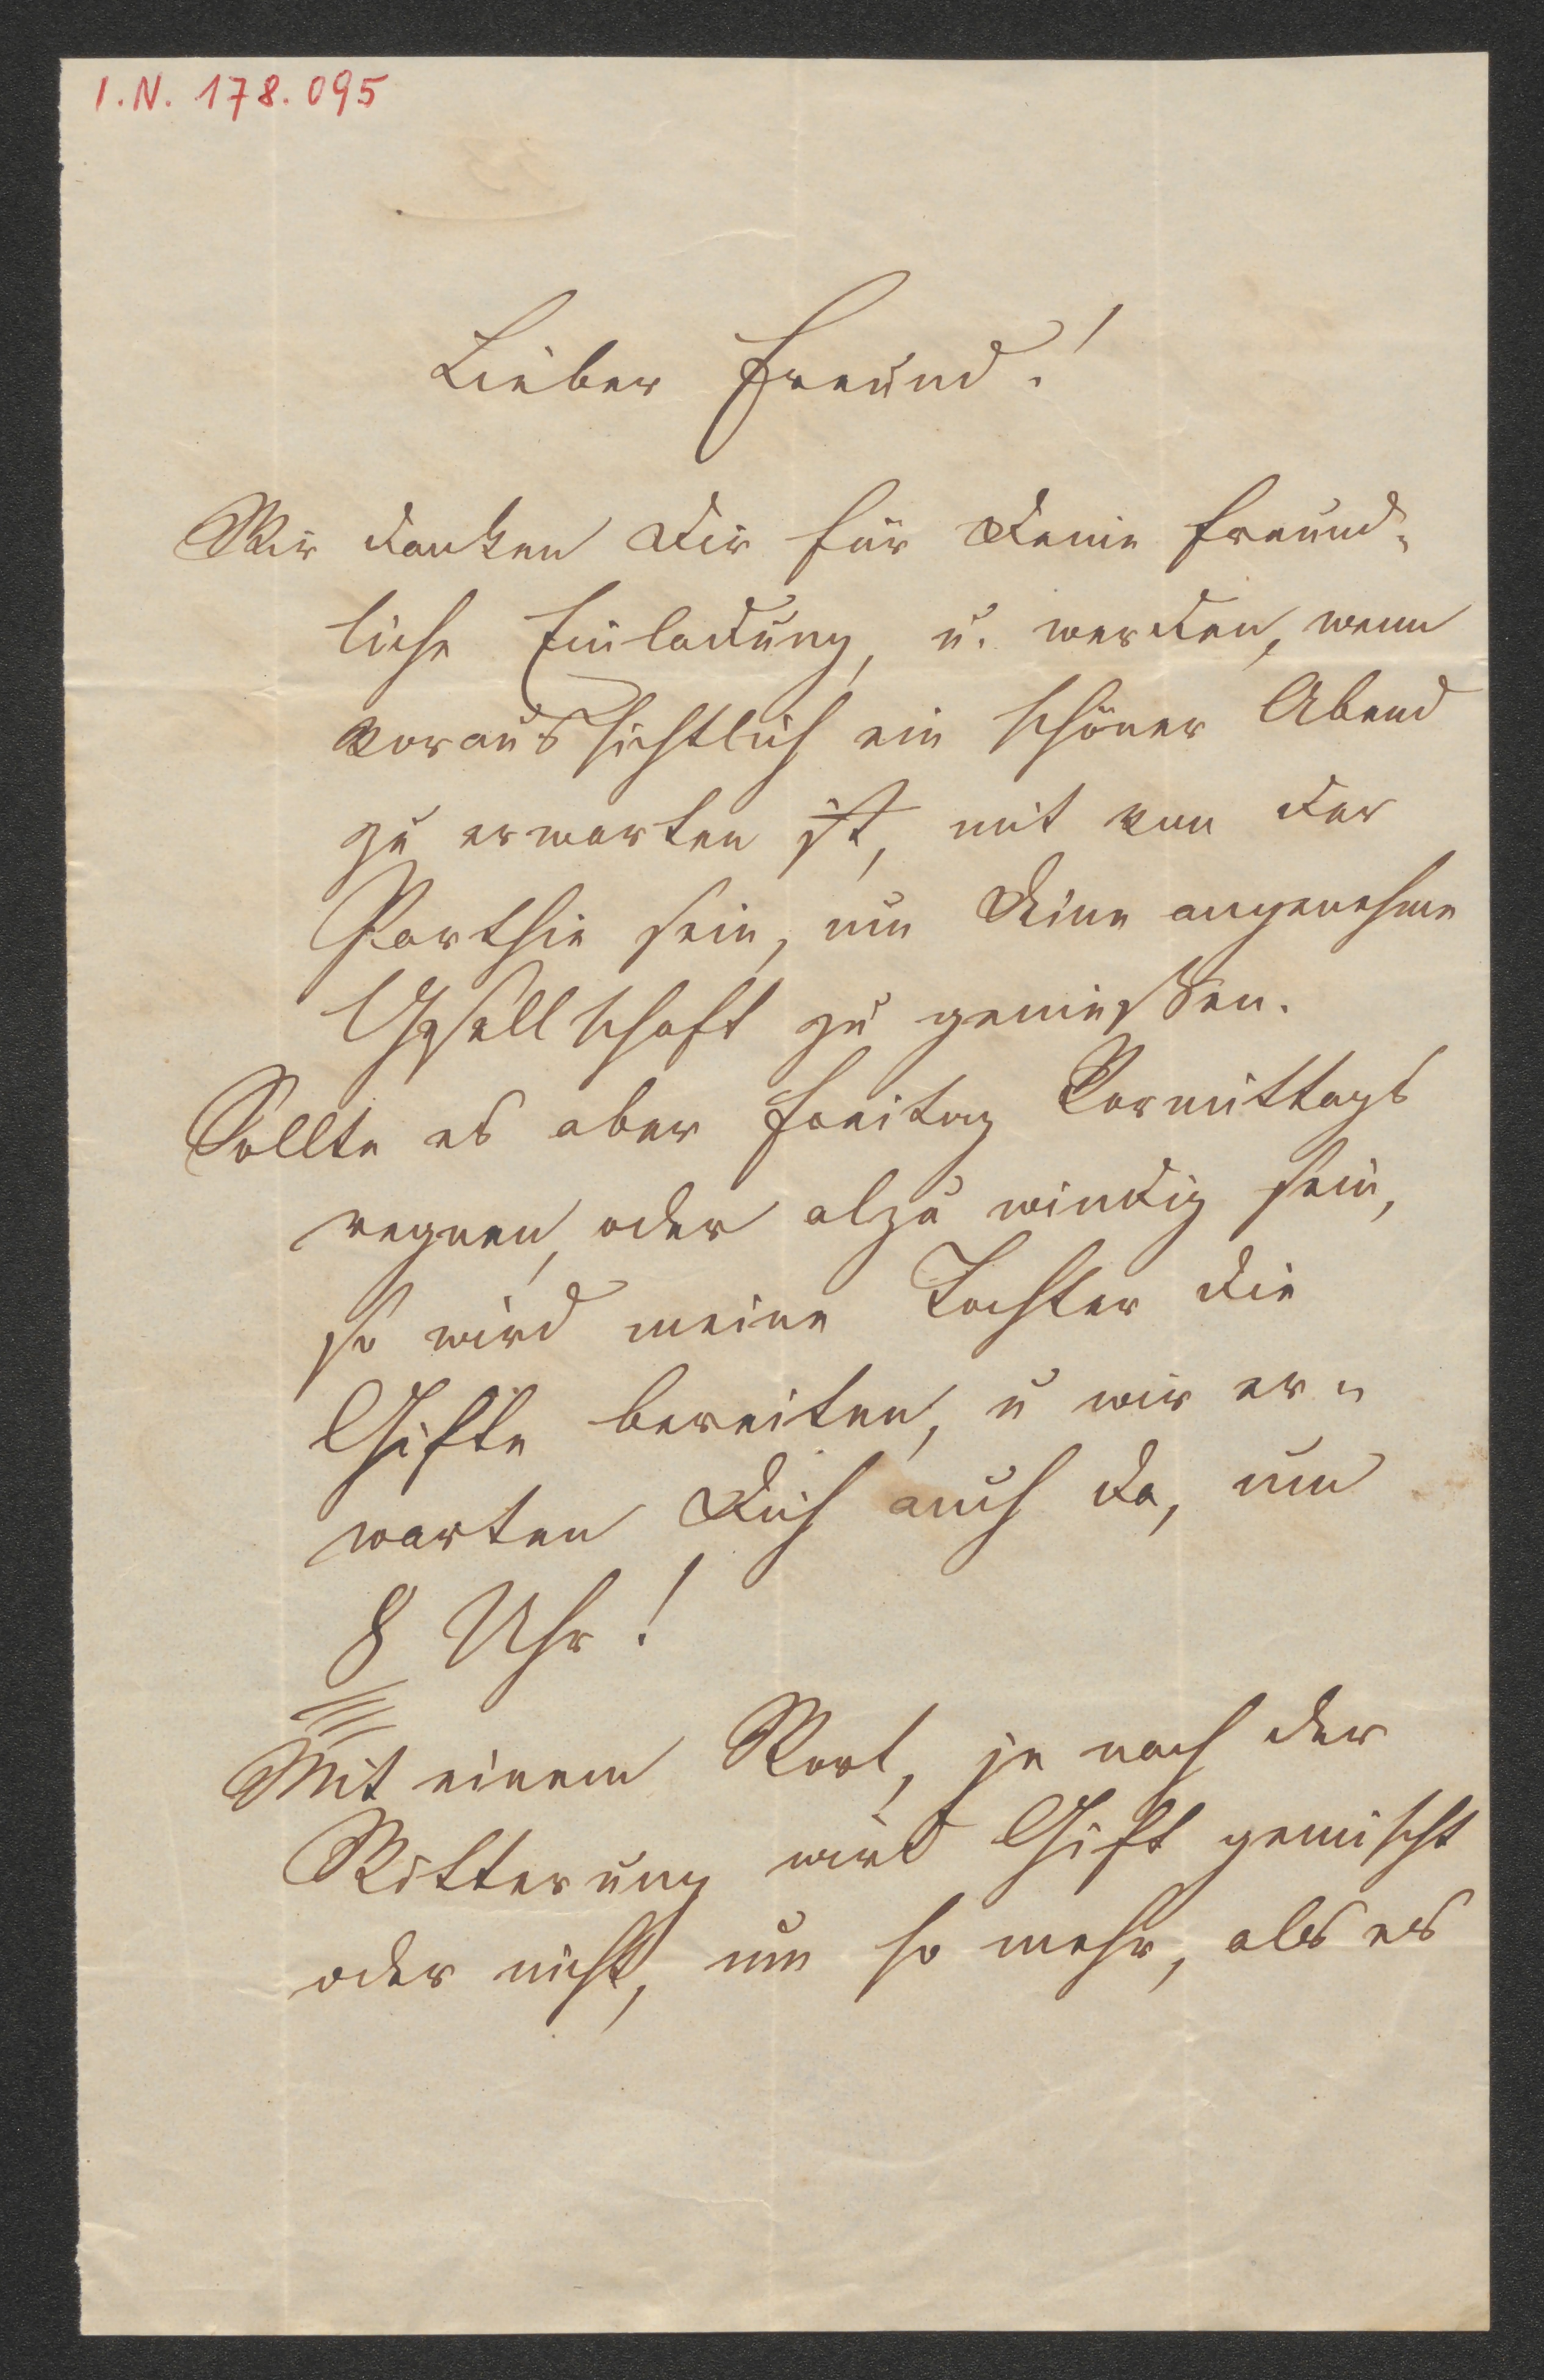 I.N. 178.095
Lieber Freund!
Wir danken Dir für Deine freund-
liche Einladung, u. werden, wenn
voraussichtlich ein schöner Abend
zu erwarten ist, mit von der
Parthie sein, um Deine angenehme
Gesellschaft zu genießen.
Sollte es aber Freitag Vormittags
regnen, oder alzu windig sein,
so wird meine Tochter die
Gifte bereiten, u wir er-
warten Dich auch da, um
8 Uhr!
Mit einem Wort, je nach der
Witterung wird Gift gemischt
oder nicht, um so mehr, als es